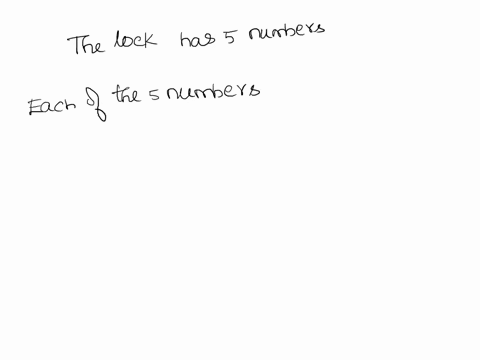 The lock has 5 numbers
Each of the 5 numbers